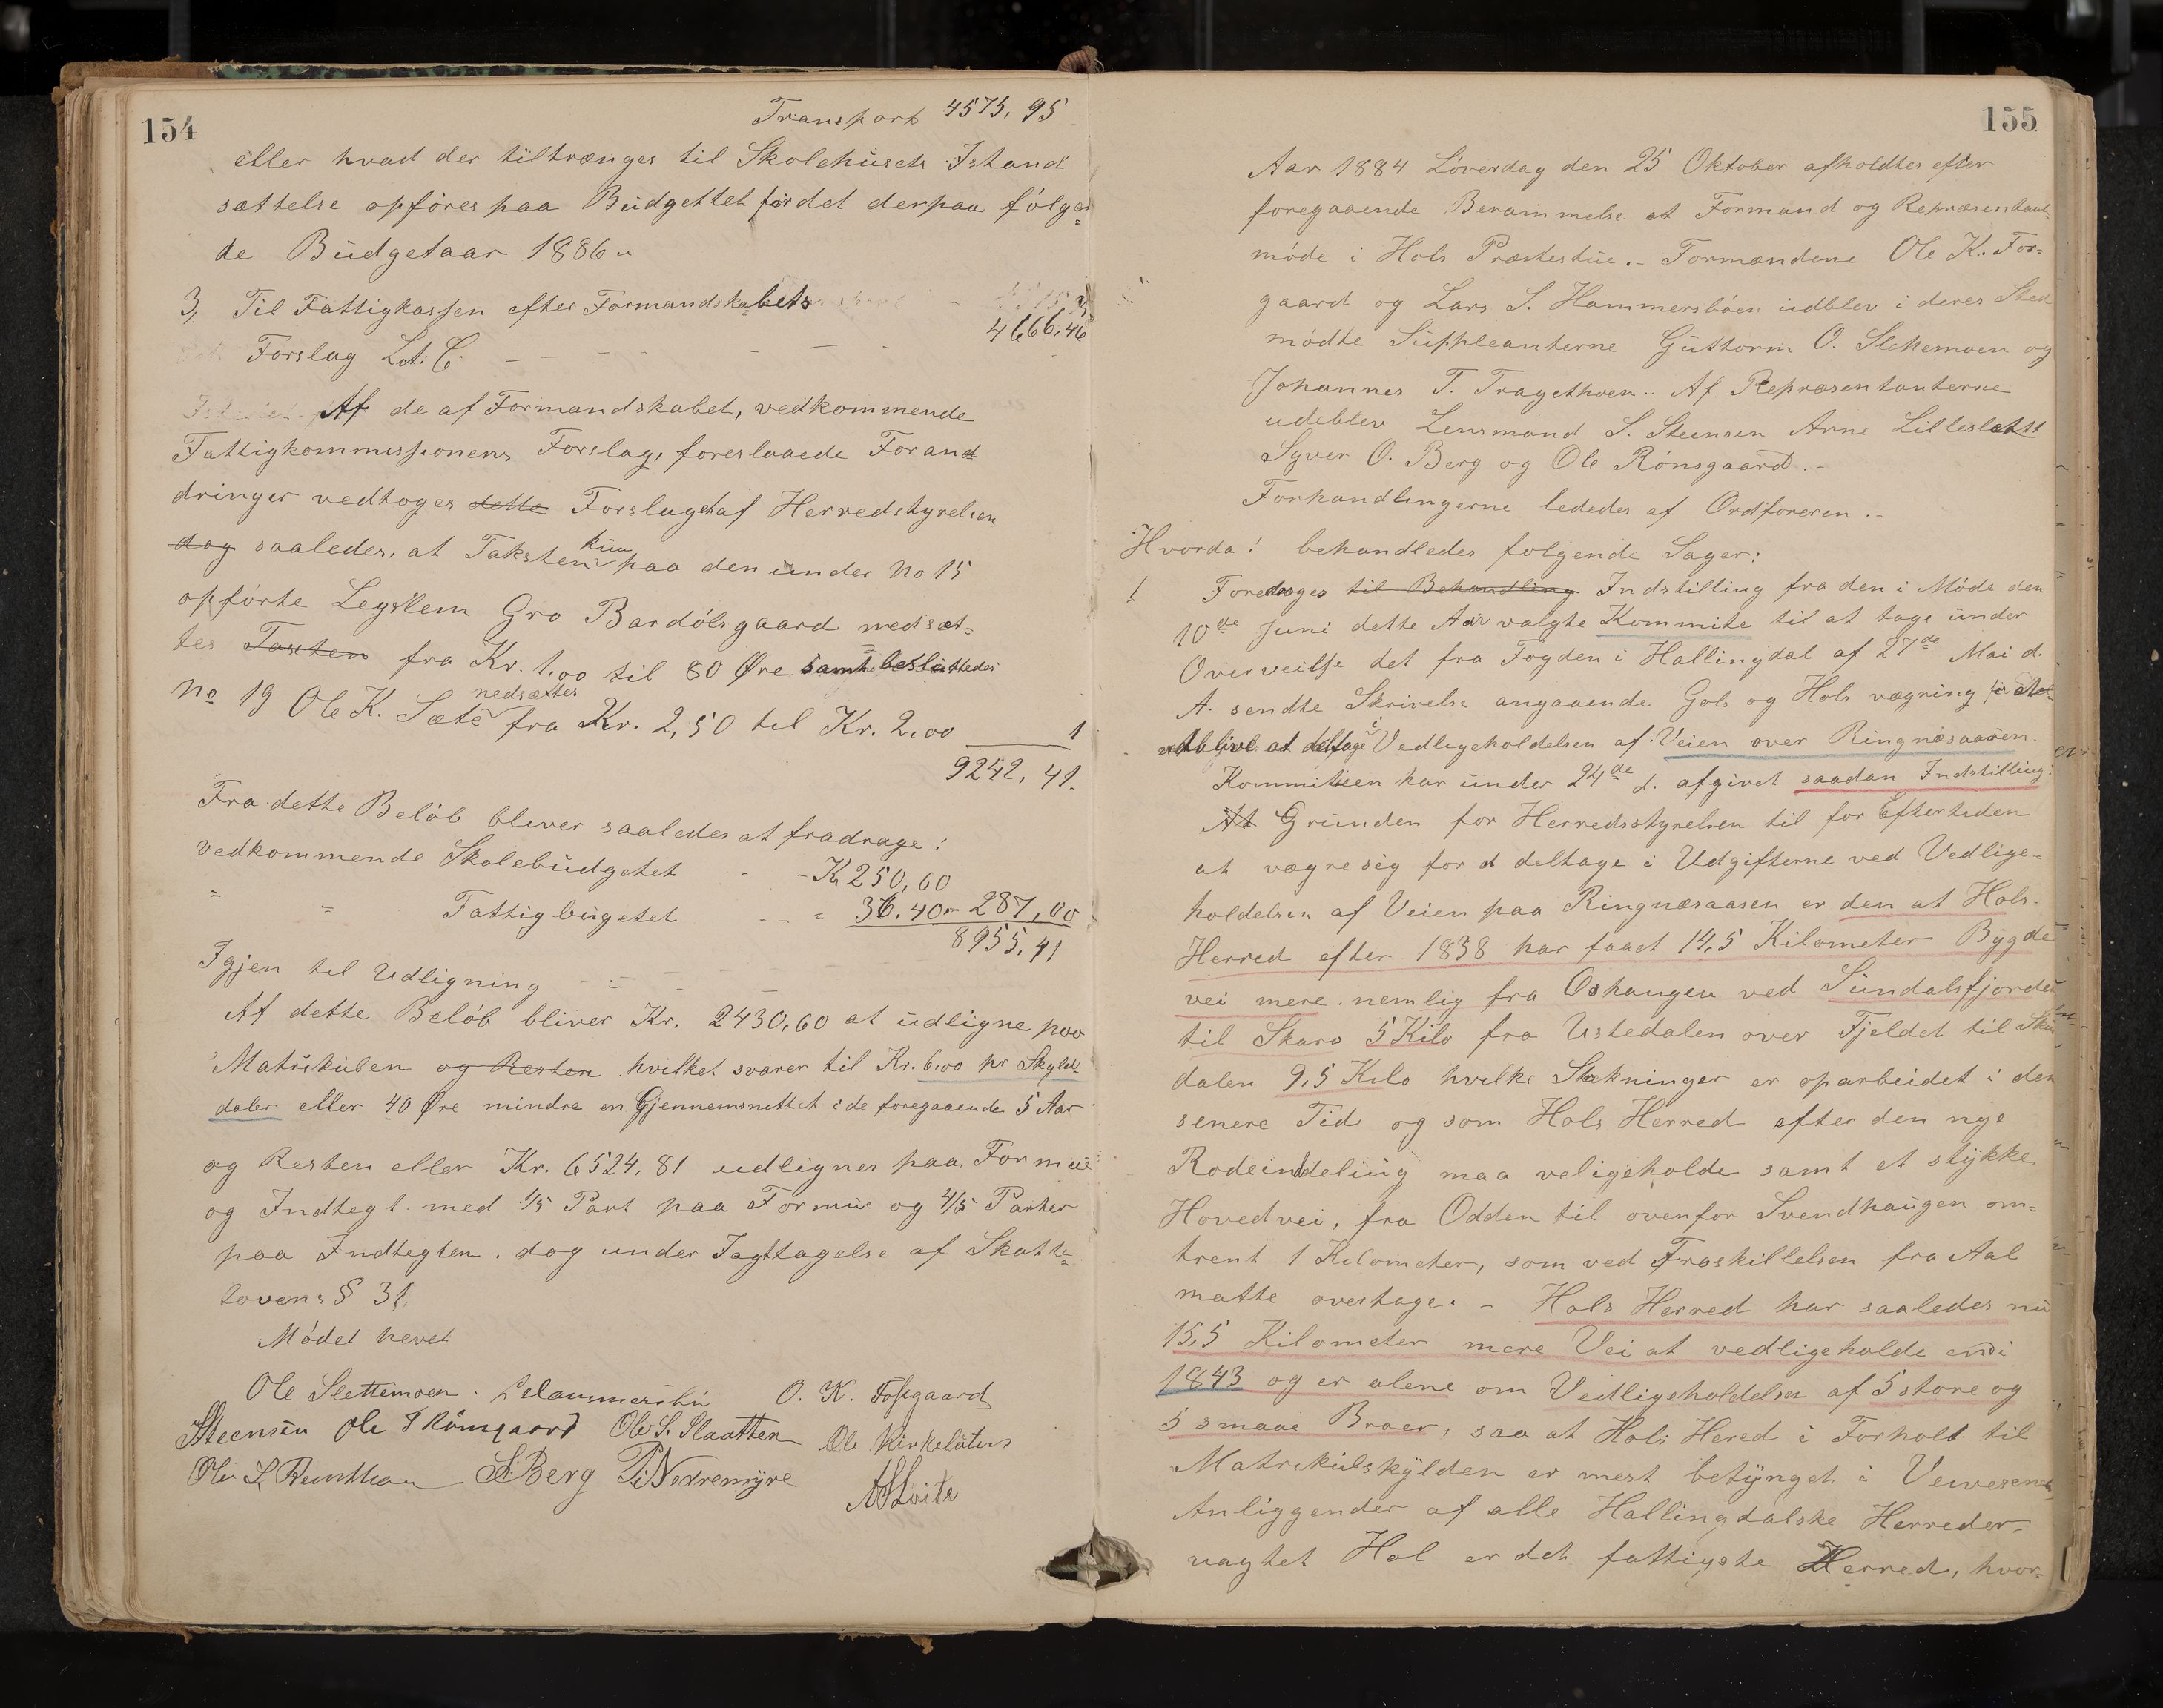 154
Transport 4575,95
eller hvad der tiltrænges til Skolehusets Istand
sættelse opføres paa Budgettet for det derpaa følgen=
de Budgetaar 1886.
3, Til Fattigkassen efter Formandskabets
Forslag Lit: C. 4666,46
Af de af Formandskabet, vedkommende
Fattigkommissionens Forslag, foreslaaede Forand
dringer vedtoges dette Forslaget af Herredstyrelsen
dog saaledes, at Taksten kun paa den under No 15
opførte Legslem Gro Bardølsgaard nedsæt=
tes Taxten fra Kr. 1,00 til 80 Øre samt besluttedes
No 19 Ole K. Sæte nedsættes fra Kr. 2,50 til Kr. 2,00
9242,41.
Fra dette Beløb bliver saaledes at fradrage:
vedkommende Skolebudgetet - - Kr 250,60
" = Fattigbugetet - - = 36.40 - 287,00
8955,41
Igjen til Udligning - -
Af dette Beløb bliver Kr. 2430,60 at udligne paa
Matrikulen og Resten hvilket svarer til Kr. 6,00 pr Skyld=
daler eller 40 Øre mindre en Gjennemsnittet i de foregaaende 5 Aar
og Resten eller Kr. 6524,81 udlignes paa Formue
og Indtegt med 1/5 Part paa Formue og 4/5 Parter
paa Indtegten. dog under Iagttagelse af Skatte=
lovens § 31.
Mødet hevet
Ole Slettemoen. O. K. Fosgaard
Steensen Ole T Rømgaard Ole S. Slaatten Ole Kirkeluten
Ole S. S. Berg T. Nedremyre
155
Aar 1884 Løverdag den 25 Oktober afholdtes efter
foregaaende Berammelse et Formand og Repræsentant=
møde i Hols Præstestue. - Formændene Ole K. Fos=
gaard og Lars S. Hammersbøen udblev i deres Sted
mødte Suppleanterne Guttorm O. Slettemoen og
Johannes T. Tragethoen. Af Repræsentanterne
udeblev Lensmand S. Steensen Arne Lilleslett
Syver O. Berg og Ole Rønsgaard. -
Forhandlingerne lededes af Ordføreren. -
Hvorda! behandledes følgende Sager:
1 Foredroges til Behandling Indstilling fra den i Møde den
10de Juni dette Aar valgte Kommite til at tage under
Overveielse det fra Fogden i Hallingdal af 27de Mai d.
A. sendte Skrivelse angaaende Gols og Hols vægring for at
vedblive at deltage i Vedligeholdelsen af Veien over Ringnæsaasen.
Kommiteen har under 24de d. afgivet saadan Indstilling:
At Grunden for Herredsstyrelsen til for Eftertiden
at vægre sig for at deltage i Udgifterne ved Vedlige=
holdelsen af Veien paa Ringnæsaasen er den at Hols
Herred efter 1838 har faaet 14,5 Kilometer Bygde
vei mere nemlig fra Oshaugen ved Sundalsfjorden
til Skaro 5 Kilo fra Ustedalen over Fjeldet til Skur
dalen 9,5 Kilo hvilke Strekninger er oparbeidet i den
senere Tid og som Hols Herred efter den nye
Rodeinddeling maa veligeholde samt et stykke
Hovedvei, fra Odden til ovenfor Svendhaugen om=
trent 1 Kilometer, som ved Fraskillelsen fra Aal
matte overtage. - Hols Herred har saaledes nu
15,5 Kilometer mere Vei at vedligeholde en i
1843 og er alene om Vedligeholdelsen af 5 store og
5 smaae Broer, saa at Hols Hered i Forhold til
Matrikulskylden er mest betynget i Veivesenets
Anliggender af alle Hallingdalske Herreder
uagtet Hol er det fattigste Herred, hvor=